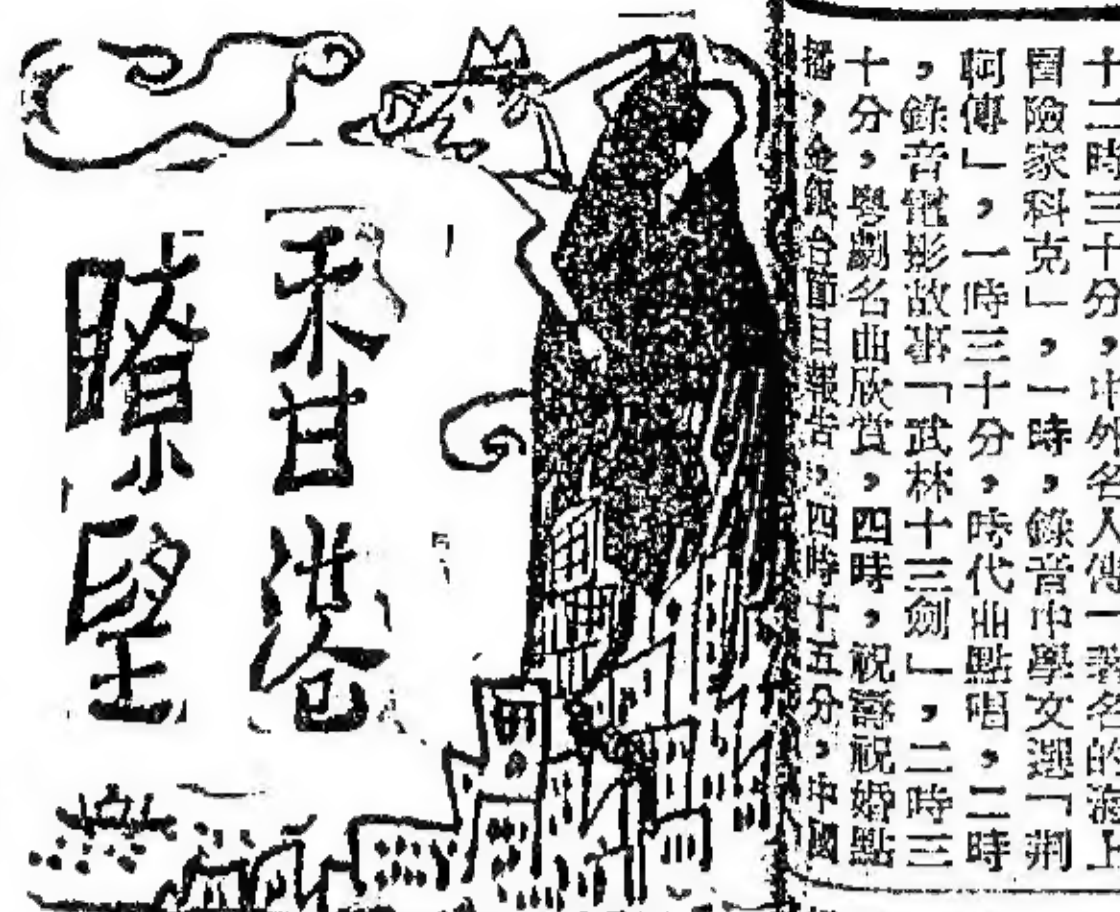 十二時三十分，中外名人傳「著名的海上
冒險家科克」，一時，錄音中學文選「荆
軻傳」，一時三十分，時代曲點唱，二時
，錄音電影故事「武林十三劍」，二時三
十分，粵劇名曲欣賞，四時，祝壽祝婚點
播，金銀台節目報告，四時十五分，中國
禾甘港
瞭望